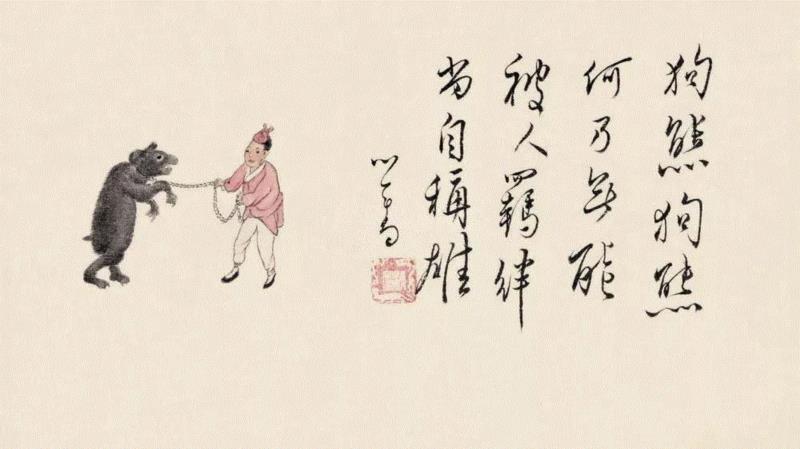 狗熊狗熊
何乃無能
被人羈絆
尚自稱雄
心畬